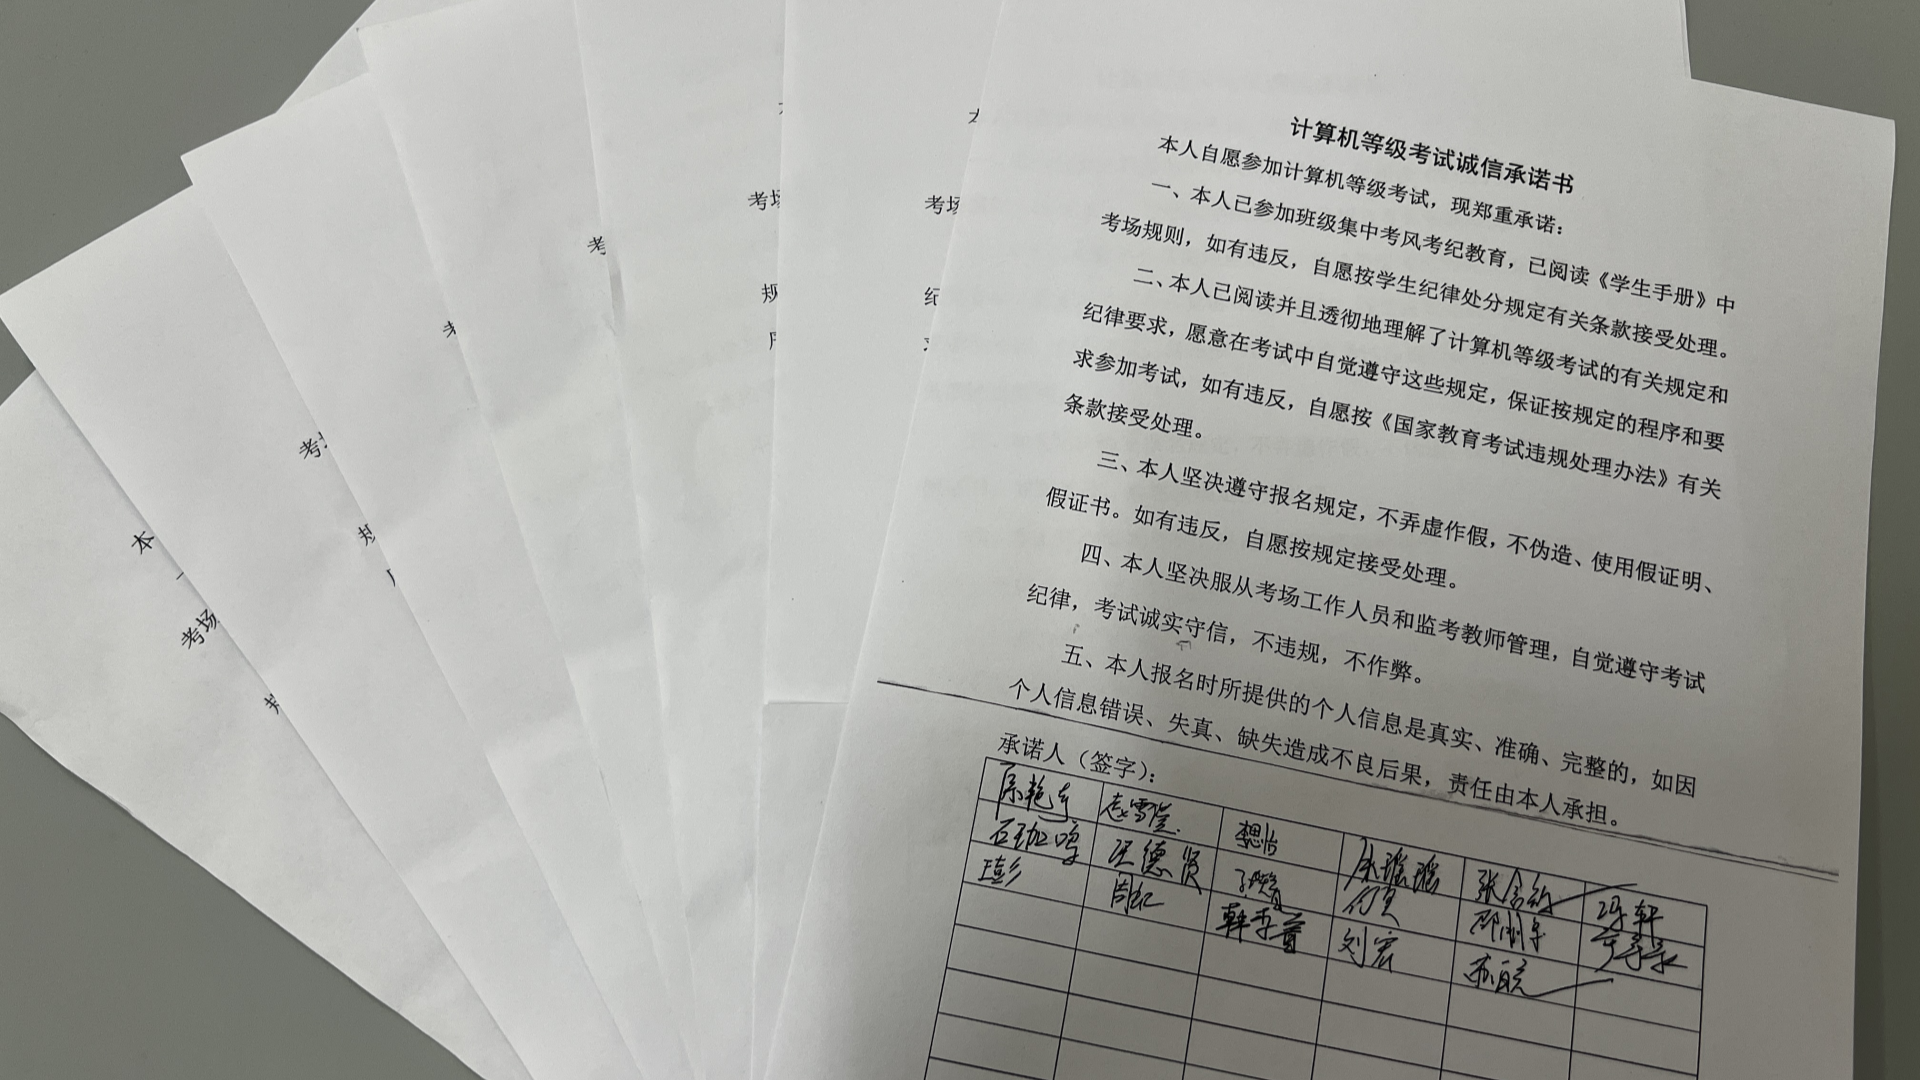 计算机等级考试诚信承诺书
本人自愿参加计算机等级考试，现郑重承诺：
一、本人已参加班级集中考风考纪教育，已阅读《学生手册》中
考场规则，如有违反，自愿按学生纪律处分规定有关条款接受处理。
二、本人已阅读并且透彻地理解了计算机等级考试的有关规定和
纪律要求，愿意在考试中自觉遵守这些规定，保证按规定的程序和要
求参加考试，如有违反，自愿按《国家教育考试违规处理办法》有关
条款接受处理。
三、本人坚决遵守报名规定，不弄虚作假，不伪造、使用假证明、
假证书。如有违反，自愿按规定接受处理。
四、本人坚决服从考场工作人员和监考教师管理，自觉遵守考试
纪律，考试诚实守信，不违规，不作弊。
五、本人报名时所提供的个人信息是真实、准确、完整的，如因
个人信息错误、失真、缺失造成不良后果，责任由本人承担。
承诺人（签字）：
李思怡 康瑶瑶 冯轩
张德贤 付夏
刘宏
考场
考
考
考场
考场
规
纪
本
一
考场